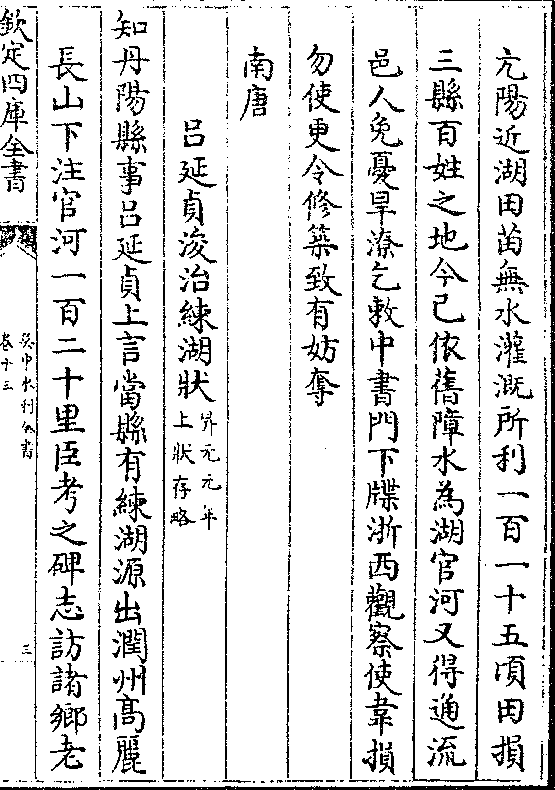 亢陽近湖田苗無水灌溉所利一百一十五頃田損
三縣百姓之地今已依舊障水為湖官河又得通流
邑人免憂旱潦乞敕中書門下牒浙西觀察使韋損
勿使更令修築致有妨奪
南唐
吕延貞浚治練湖狀昇元元年上狀存略
知丹陽縣事吕延貞上言當縣有練湖源出潤州高麗
長山下注官河一百二十里臣考之碑志訪諸鄉老
欽定四庫全書
吳中水利全書
卷十三
三